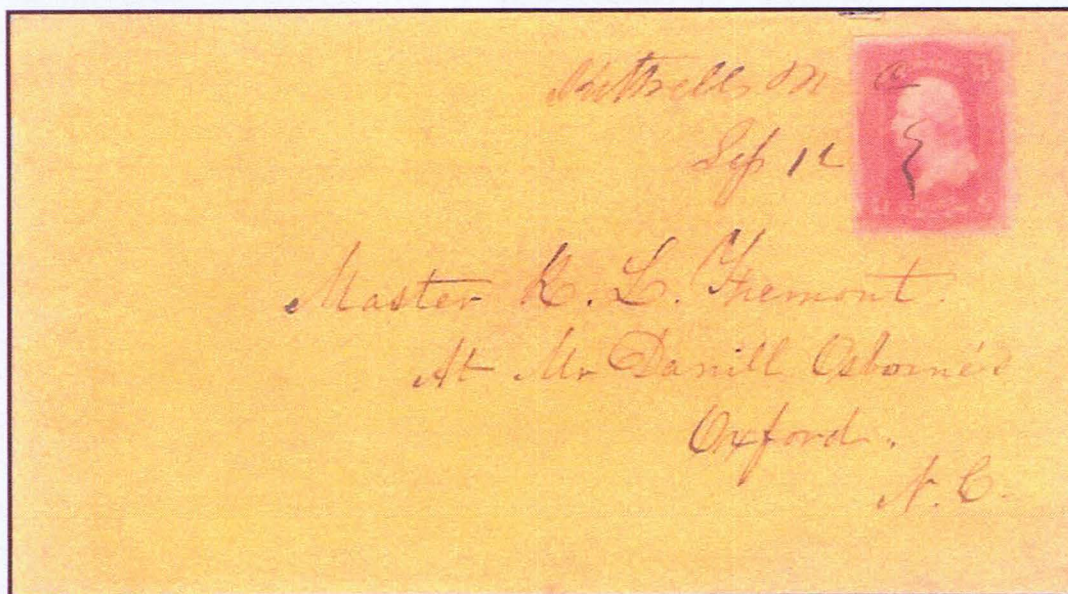 Kittrells N C
Sep 12
Master R. L. Fremont.
At Mr Danill Osborne's
Oxford.
N. C.